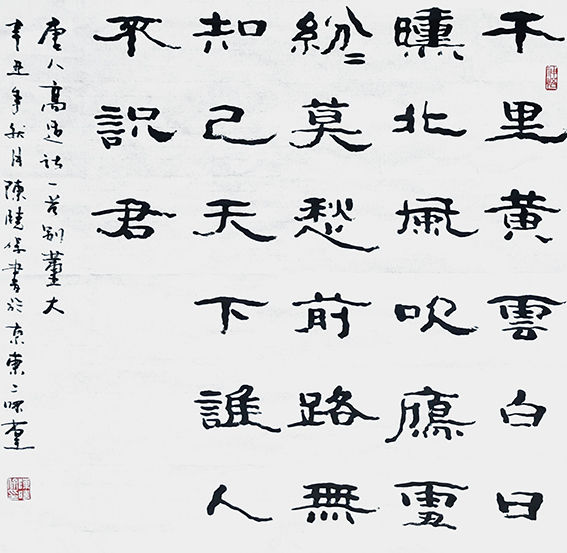 千里黃雲白日
曛北風吹鴈雪
紛〻莫愁前路無
知己天下誰人
不識君
唐人高適詩一首別董大
辛丑年秋月陳書於京東